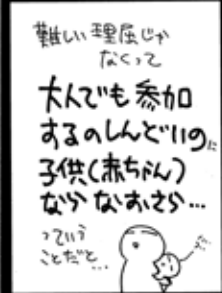 難しい理屈じゃ
なくって
大人でも参加
するのしんどいのに
子供(赤ちゃん)
ならなおさら…
っていう
ことだと…